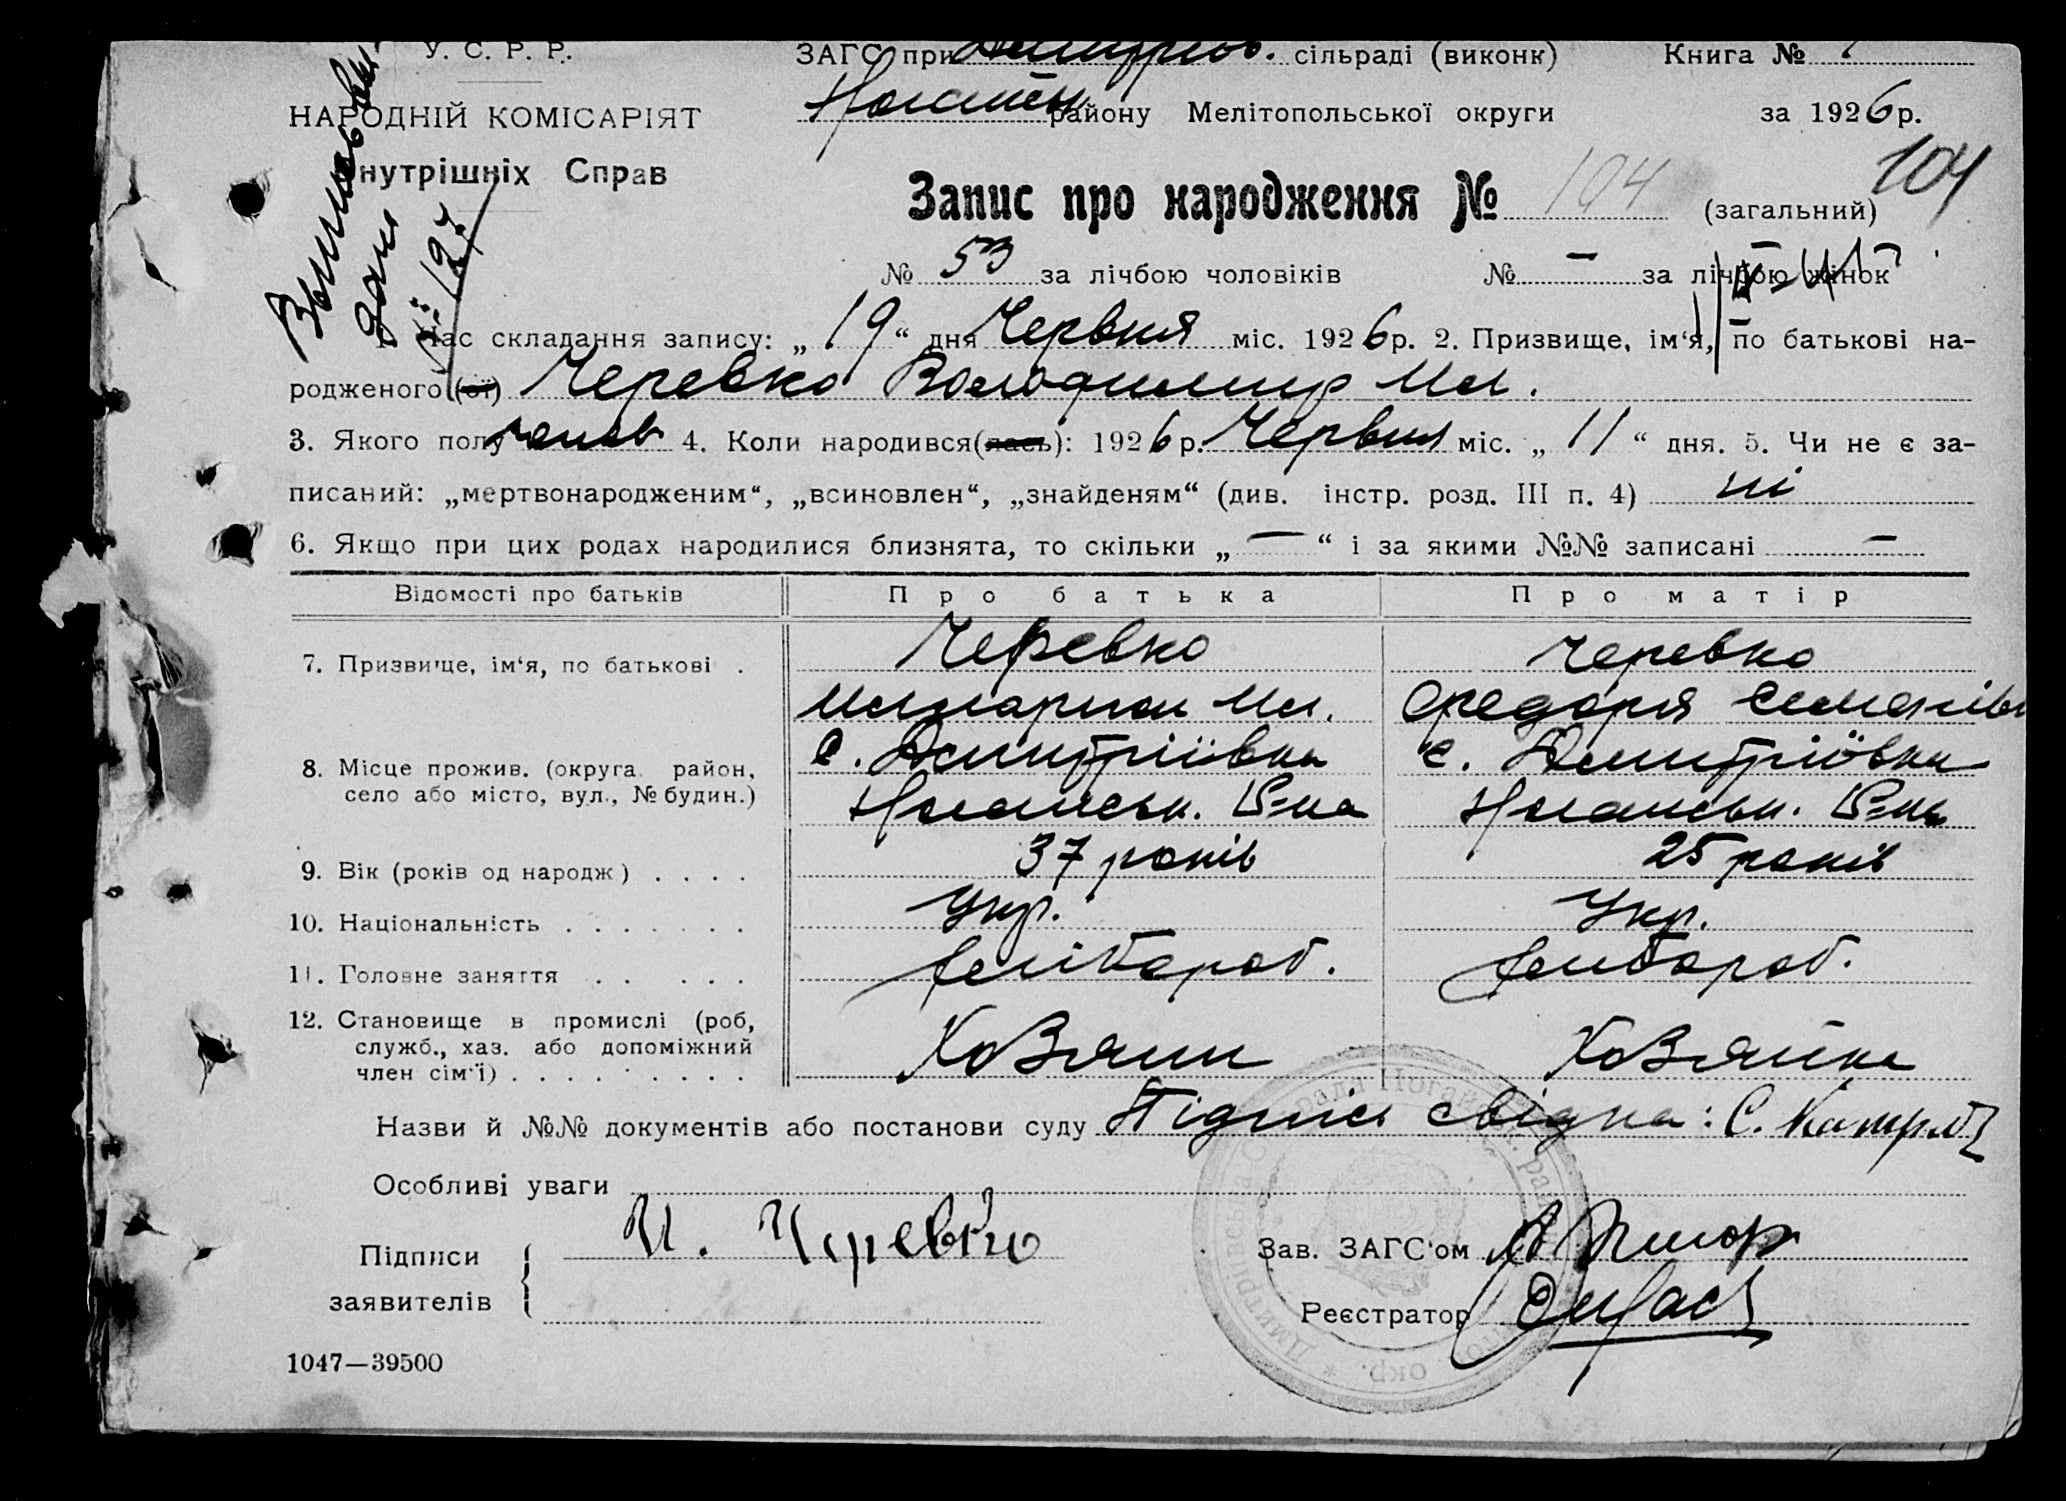 У. С. Р. Р.
ЗАГС при Дмитрів. сільраді (виконк) Книга №
НАРОДНІЙ КОМІСАРІЯТ
Ногайськ району Мелітопольської округи за 1926 р.
Внутрішніх Справ
Запис про народження № 104 (загальний) 104
№ 53 за лічбою чоловіків № — за лічбою жінок
1. Час складання запису: „19“ дня Червня міс. 1926 р. 2. Призвище, ім‘я, по батькові на-
родженого (ої) Черевко Володимир Ил.
3. Якого полу чолов 4. Коли народився(лась): 1926 р. Червня міс. „11“ дня. 5. Чи не є за-
писаний: „мертвонародженим“, „всиновлен“, „знайденям“ (див. інстр. розд. III п. 4) ні
6. Якщо при цих родах народилися близнята, то скільки „—“ і за якими №№ записані —
Відомості про батьків Про батька Про матір
7. Призвище, ім‘я, по батькові . Черевко Черевко
Ил. Федора Семенівн
8. Місце прожив. (округа район, с. Дмитріївка с. Дмитріївка
село або місто, вул., № будин.) Ногайськ. Р-на Ногайськ. Р-на
9. Вік (років од народж) . . . . 37 років 25 років
10. Національність . . . . . . . Укр. Укр.
11. Головне заняття . . . . . Хлібороб. Хлібороб.
12. Становище в промислі (роб,
служб., хаз. або допоміжний Хозяин Хозяйка
член сім‘ї) . . . . . . . . .
Назви й №№ документів або постанови суду Підпис свідка: С.
Особливі уваги
Підписи И. Черевко Зав. ЗАГС‘ом
заявителів Реєстратор
1047—39500